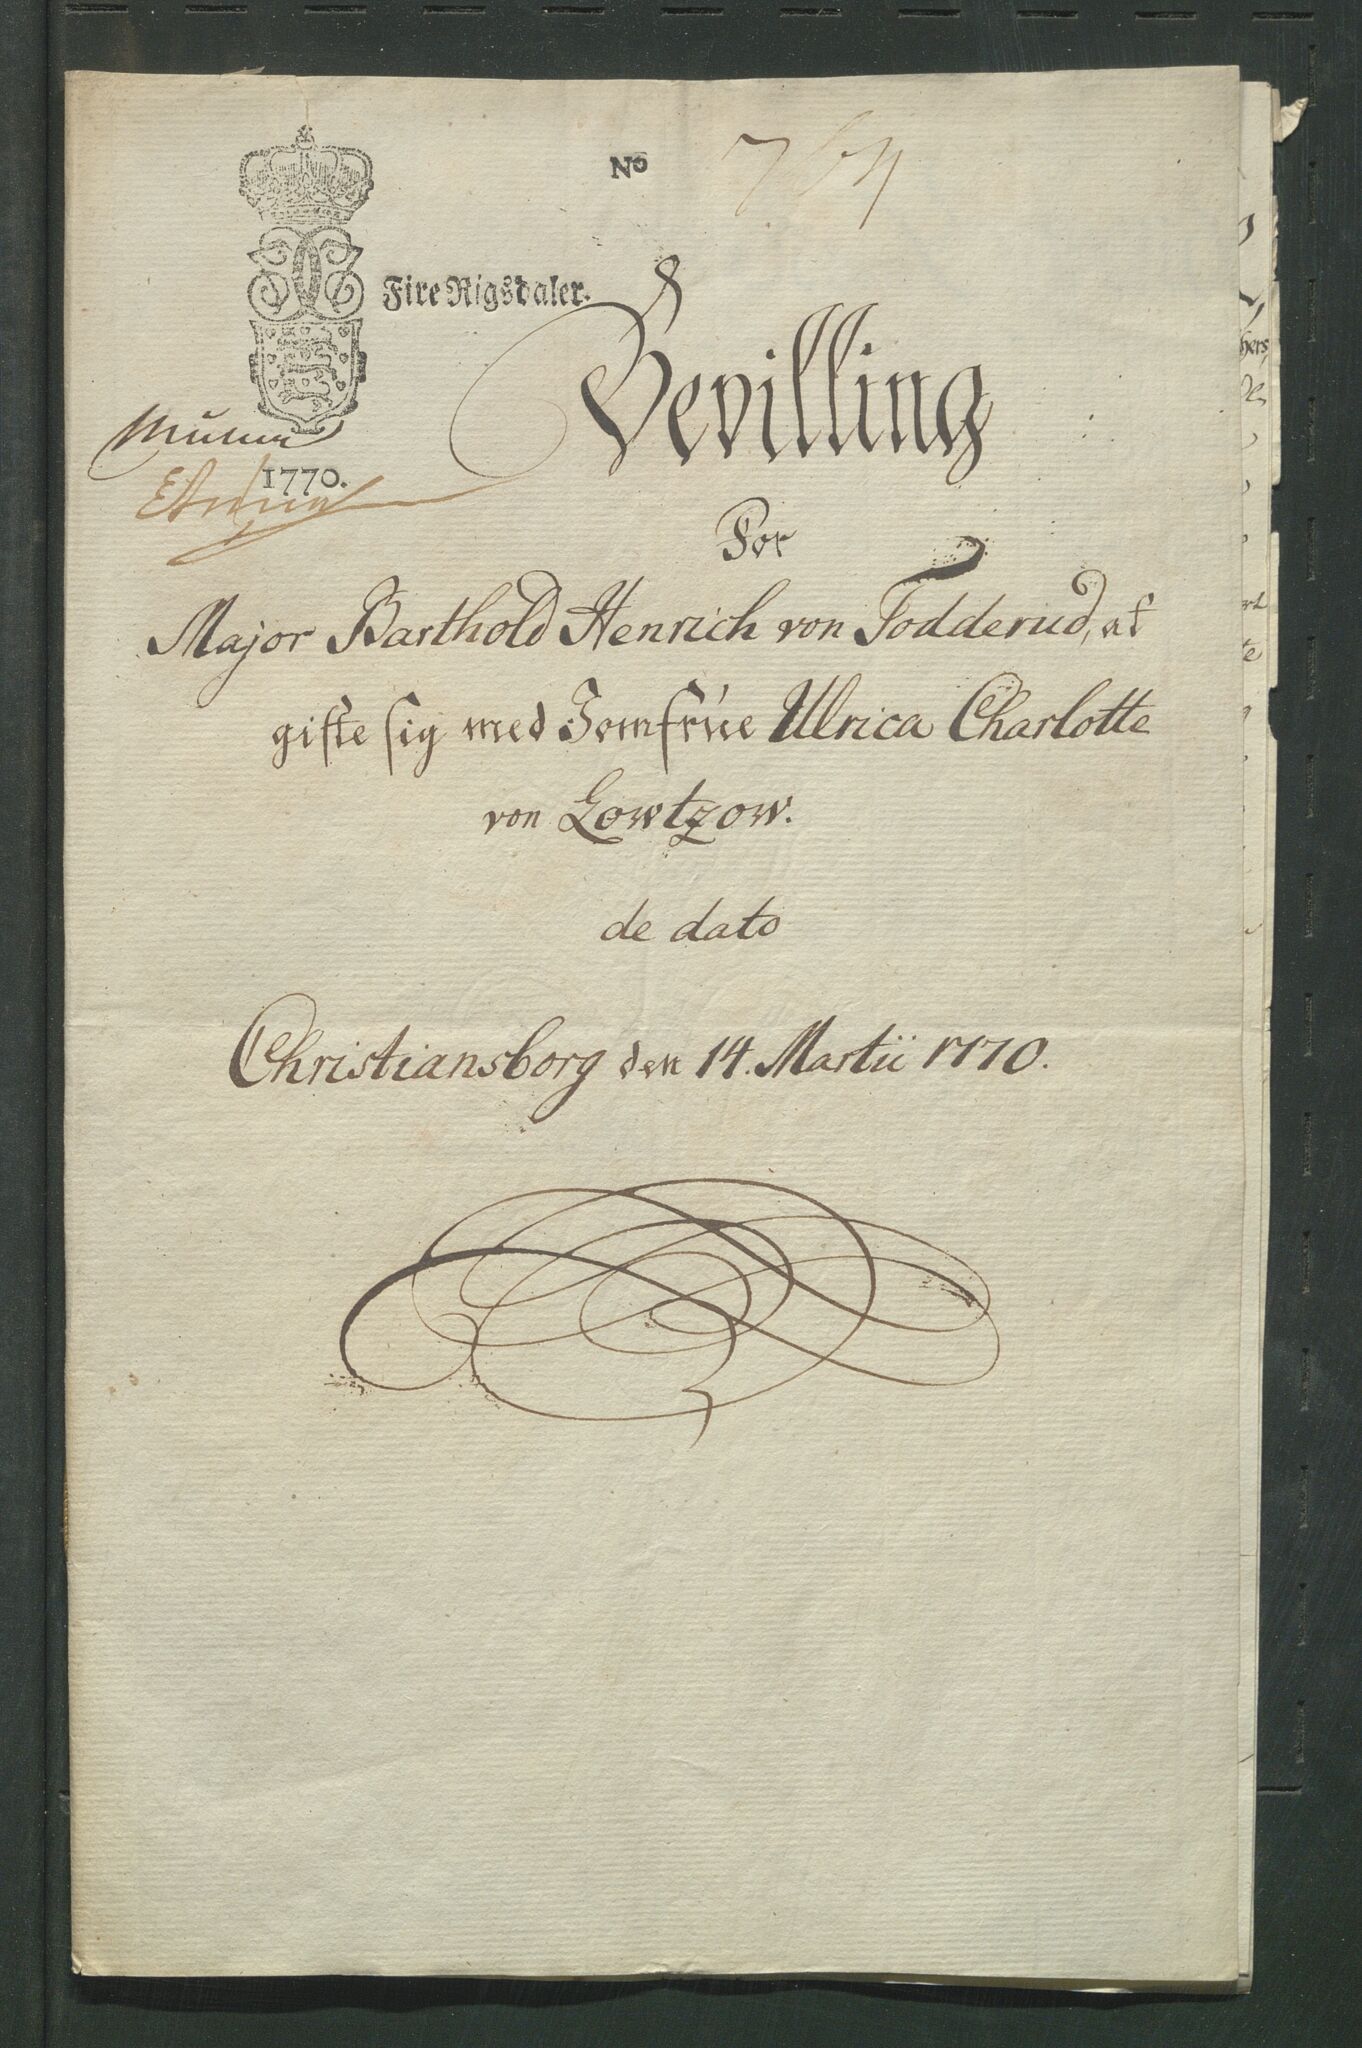 No 764
Fire Rigsdaler.
Bevilling
1770.
For
Major Barthold Henrich von Todderud, at
gifte sig med Jomfrúe Ulrica Charlotte
von Lowtzow.
de dato
Christiansborg den 14. Martii 1770.